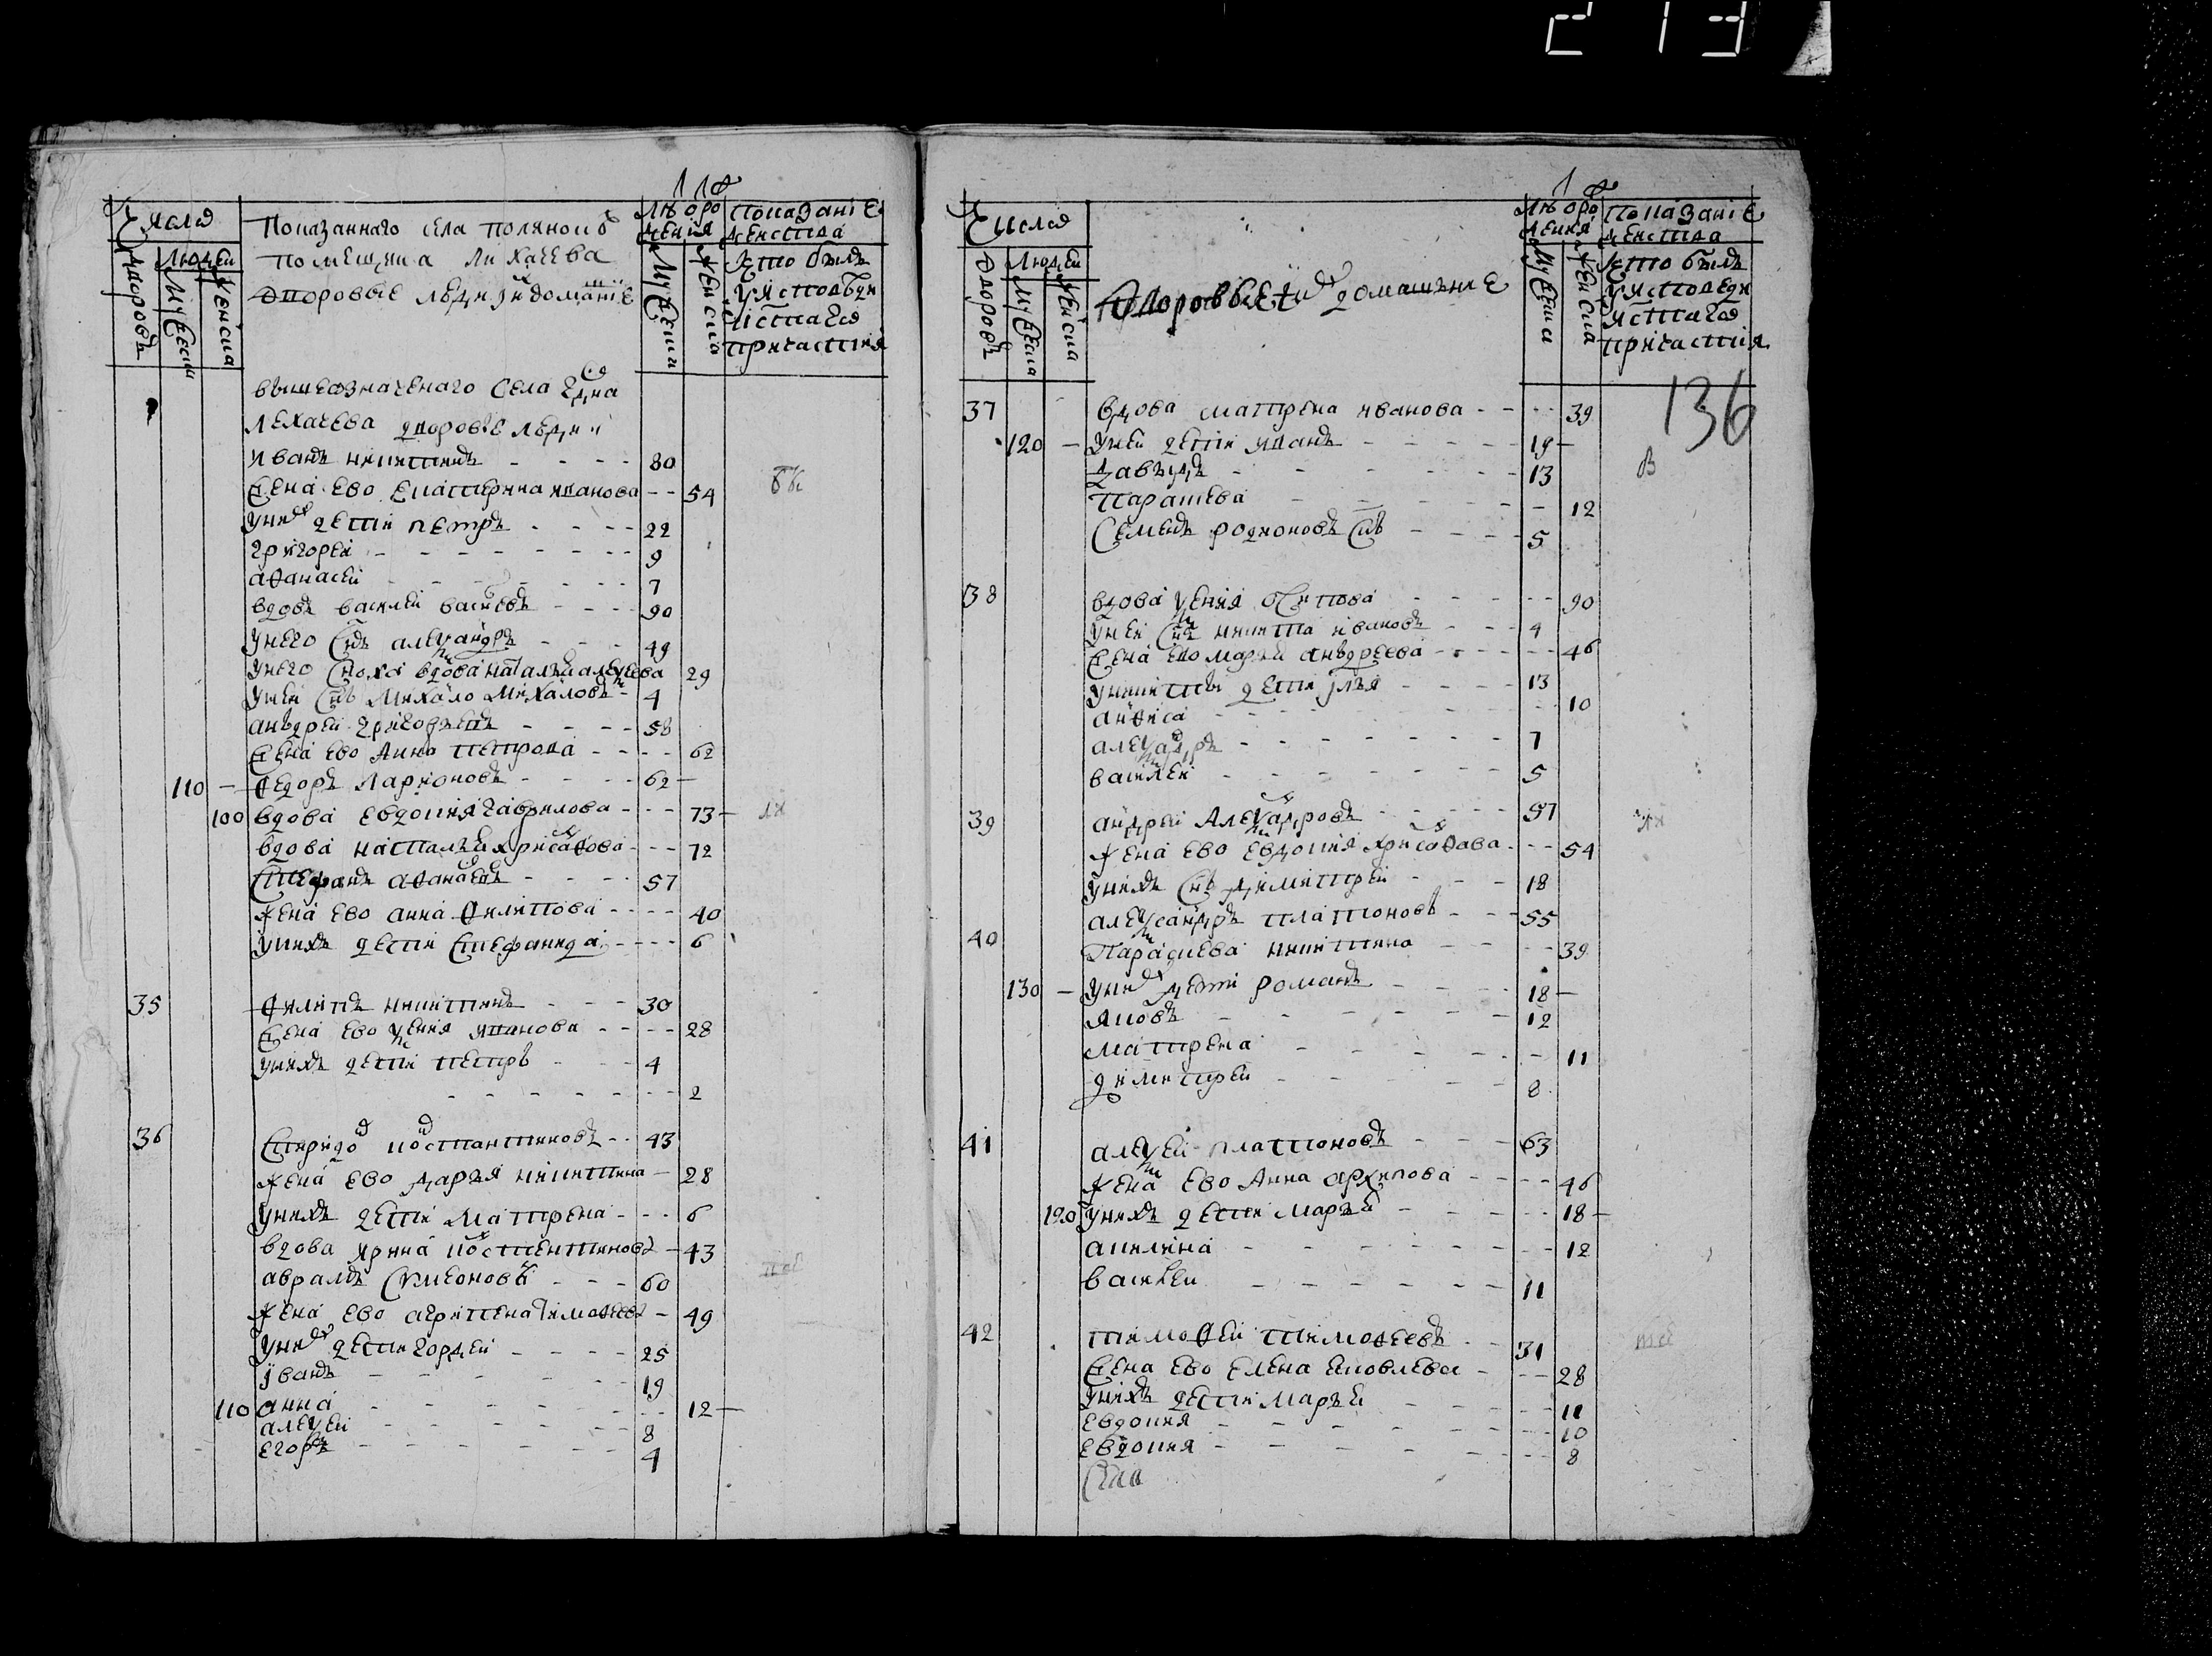 213
Числа
Дворовъ
Людей
Мужеска
Женска
Показаннаго села полянокъ
помещика Лихачева
дворовые люди и ихъ домашние
Лѣ оро
жения
Мужеска
Женска
показание
действа
кто былъ
у исповеди
и святаго
причастия
вышеозначенаго села
Лехачева дворовые люди
иванъ никитинъ 80
жена ево екатерина иванова 54
у них дети петръ 22
григорей 9
афанасей 7
вдовъ василей васильевъ 90
у него снъ александръ 49
у него сноха вдова наталья алексеева 29
у ней снъ михайло михайловъ 4
андрей григорьевъ 58
жена ево анна петрова 62
110 федоръ ларионовъ 62
100 вдова евдокия гаврилова 73
вдова наталья хрисанфова 72
стефанъ афанасьевъ 57
жена ево анна филипова 40
у нихъ дети стефанида 6
35 филипъ никитинъ 30
жена ево ксения иванова 28
у нихъ дети петръ 4
2
36 спиридонъ костантиновъ 43
жена ево дарья никитина 28
у нихъ дети матрена 6
вдова ирина костентинова 43
аврамъ симеоновъ 60
жена ево агрипена тимофеева 49
у них дети гордей 25
иванъ 19
110 анна 12
алексей 8
егоръ 4
Числа
Дворовъ
Людей
Мужеска
Женска
Дворовые и их домашние
Лѣ оро
жения
Мужеска
Женска
показание
действа
кто былъ
у исповеди
и святаго
причастия
136
37 вдова матрена иванова 39
120 у ней дети иванъ 19
давыдъ 13
парасева 12
семенъ родионовъ снъ 5
38 вдова ксения осипова 90
у ней снъ никита ивановъ 4
жена ево марья андреева 46
у никиты дети илья 13
анфиса 10
александръ 7
василей 5
39 андрей александровъ 57
жена ево евдокия хрисанфава 54
у нихъ снъ димитрей 18
40 александръ платоновъ 55
параскева никитина 39
130 у них дети романъ 18
яковъ 12
матрена 11
димитрей 8
41 алексей платоновъ 63
жена ево анна архипова 46
120 у нихъ дети марья 18
акилина 12
василей 11
42 тимофей тимофеевъ 31
жена ево елена яковлева 28
у нихъ дети марья 11
евдокия 10
евдокия 8